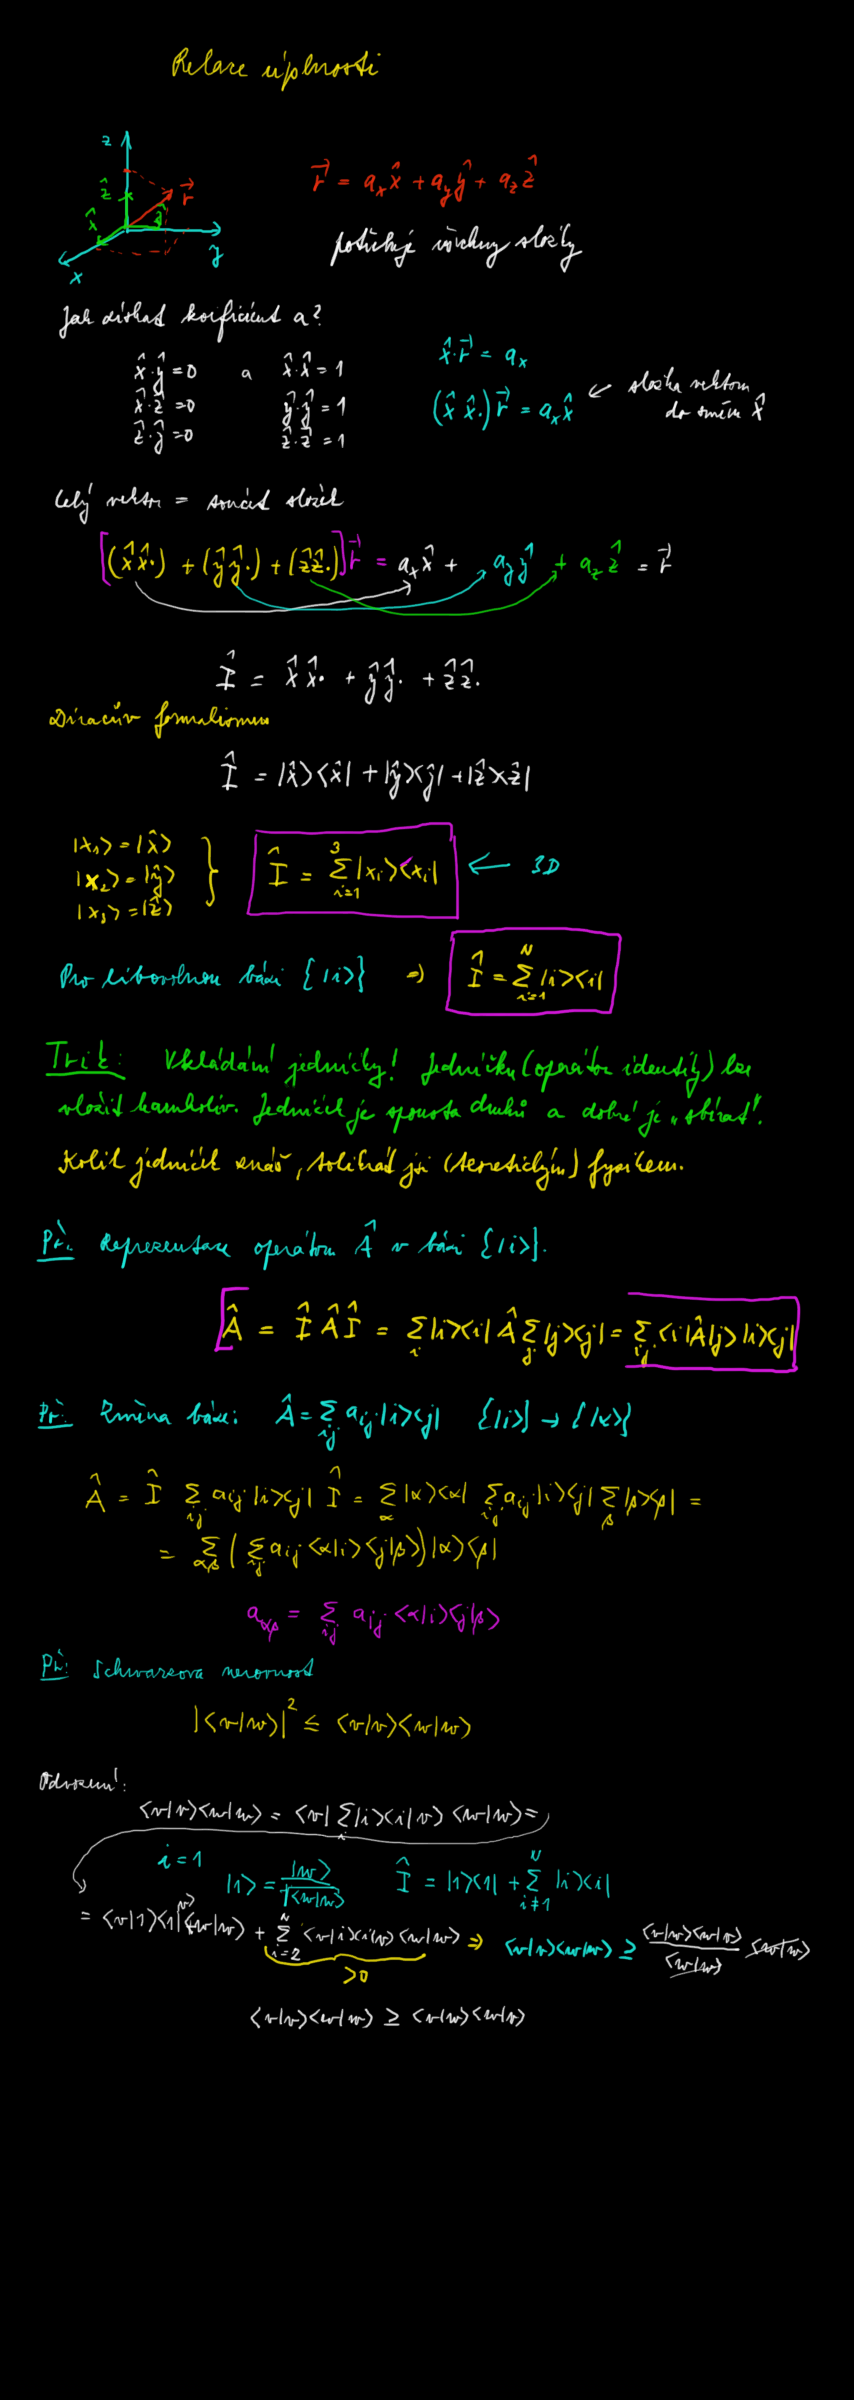 Relace úplnosti
z
ẑ
r⃗
x̂
ŷ
x
y
r⃗ = aₓx̂ + a_yŷ + a_zẑ
potřebuji všechny složky
Jak získat koeficient a?
x̂·ŷ = 0 a x̂·x̂ = 1
x̂·ẑ = 0 ŷ·ŷ = 1
ẑ·ŷ = 0 ẑ·ẑ = 1
x̂·r⃗ = aₓ
(x̂ x̂·) r⃗ = aₓx̂ ← složka vektoru do směru x̂
Celý vektor = součet složek
[(x̂x̂·) + (ŷŷ·) + (ẑẑ·)] r⃗ = aₓx̂ + a_yŷ + a_zẑ = r⃗
Î = x̂x̂· + ŷŷ· + ẑẑ·
Diracův formalismus
Î = |x̂><x̂| + |ŷ><ŷ| + |ẑ><ẑ|
|x₁> = |x̂>
|x₂> = |ŷ>
|x₃> = |ẑ>
} Î = Σ_{i=1}^{3} |xᵢ><xᵢ| ← 3D
Pro libovolnou bázi {|i>} ⇒ Î = Σ_{i=1}^{N} |i><i|
Trik: Vkládání jedničky! Jedničku (operátor identity) lze
vložit kamkoliv. Jedniček je spousta druhů a dobré je „sbírat".
Kolik jedniček znáš, tolikrát jsi (teoretickým) fyzikem.
Př. Reprezentace operátoru Â v bázi {|i>}.
Â = Î Â Î = Σ_i |i><i| Â Σ_j |j><j| = Σ_{ij} <i|Â|j> |i><j|
Př: Změna báze: Â = Σ_{ij} a_{ij} |i><j| {|i>} → {|α>}
Â = Î Σ_{ij} a_{ij} |i><j| Î = Σ_α |α><α| Σ_{ij} a_{ij} |i><j| Σ_β |β><β| =
= Σ_{αβ} (Σ_{ij} a_{ij} <α|i><j|β>) |α><β|
a_{αβ} = Σ_{ij} a_{ij} <α|i><j|β>
Př: Schwarzova nerovnost
|<v|w>|² ≤ <v|v><w|w>
Odvození:
<v|v><w|w> = <v| Σ_i |i><i|v> <w|w> =
i = 1 |1> = |w>/√<w|w> Î = |1><1| + Σ_{i≠1}^{N} |i><i|
= <v|1><1|v><w|w> + Σ_{i=2}^{N} <v|i><i|v><w|w> ⇒ <v|v><w|w> ≥ <v|w><w|v>/<w|w> <w|w>
>0
<v|v><w|w> ≥ <v|w><w|v>